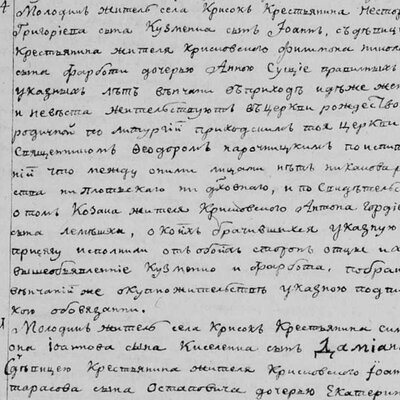 4 Молодикъ житель села Крисокъ Крестьянина Нестора
Григориева сына Кузменка сынъ Іоаннъ, съ дѣвицею
Крестьянина жителя Крисковского Филимона
сына Фарботи дочерью Анною Сущіе правилныхъ
указныхъ лѣтъ вѣнчани въ приходѣ идѣже жен
и невѣста жительствуютъ въ Церкви рождество
родичной по литургіи приходскимъ тоя Церкви
Священникомъ Феодоромъ нарочицкимъ по испит
ній что между оними лицами нѣтъ никаковаго р
ства ни плотскаго ни духовнаго, и по Свидѣтельс
о томъ Козака жителя Крисковского Антона Гордіе
сына лемешка, о коихъ брачившихся указную
присягу исполнили отъ обоихъ сторонъ отцы и
вышеобъявленіе Кузменко и Фарбота, побрач
вѣнчаній же окупно жительствъ указною подпи
кою обовязанни.
Молодикъ житель села Крисокъ Крестьянина Сим
она Іоаннова сына Киселенка сынъ Даміан
Сдѣвицею Крестьянина жителя Крисковского Іоан
тарасова сына Остаповича дочерью Екатерин